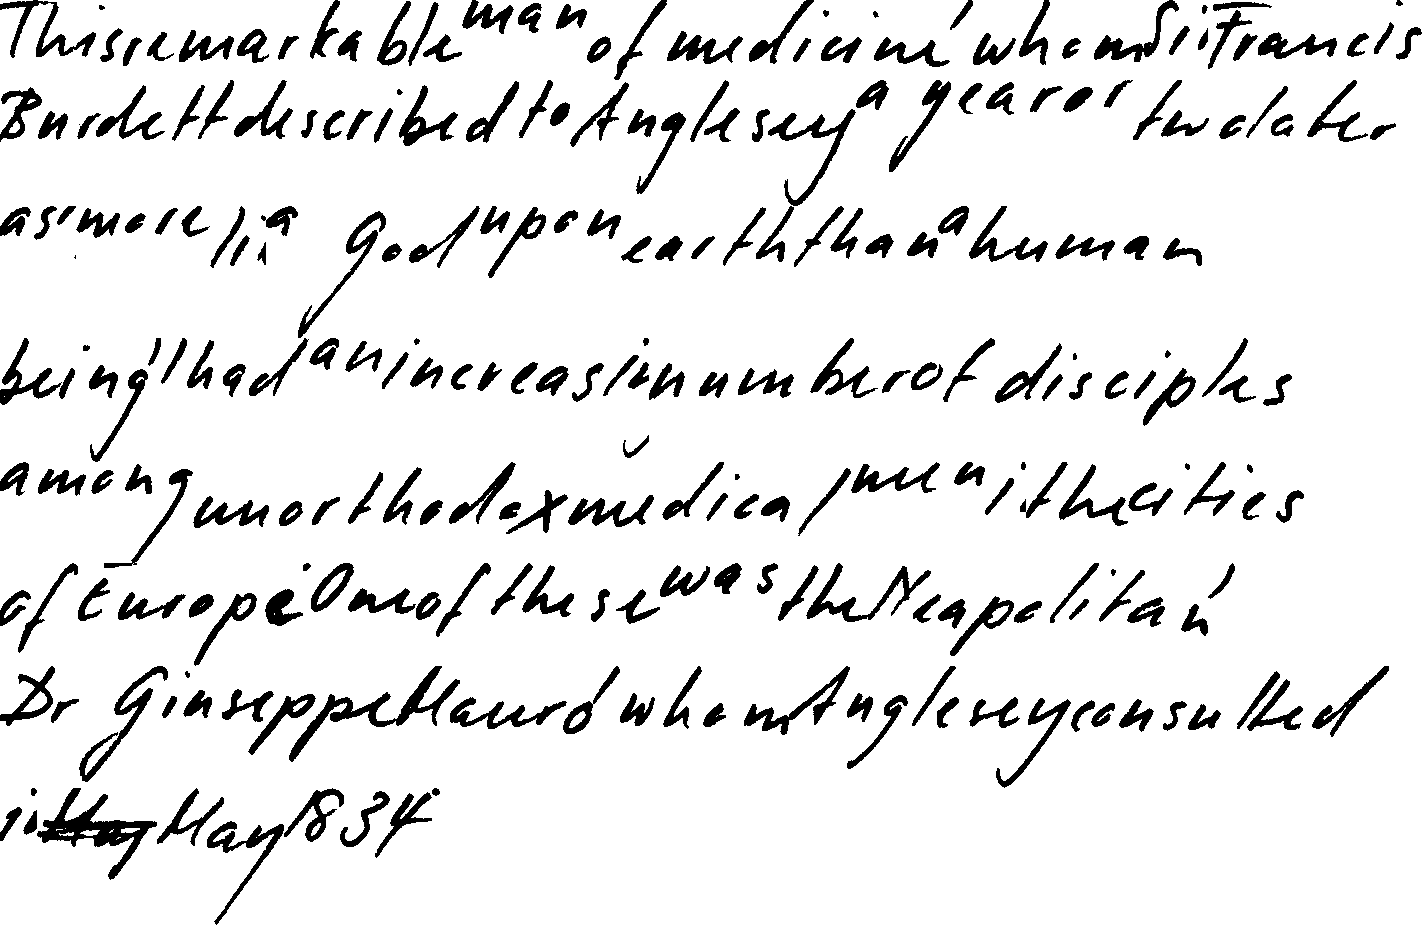 This remarkable man of medicine' whom Sir Francis
Burdett described to Anglesey a year or two later
as 'more a God upon earth than a human
being' had an increasin number of disciples
among unorthodox medical men i the cities
of Europe. One of these was the Neapolitan,
Dr Giuseppe Mauro, whom Anglesey consulted
in May 1834